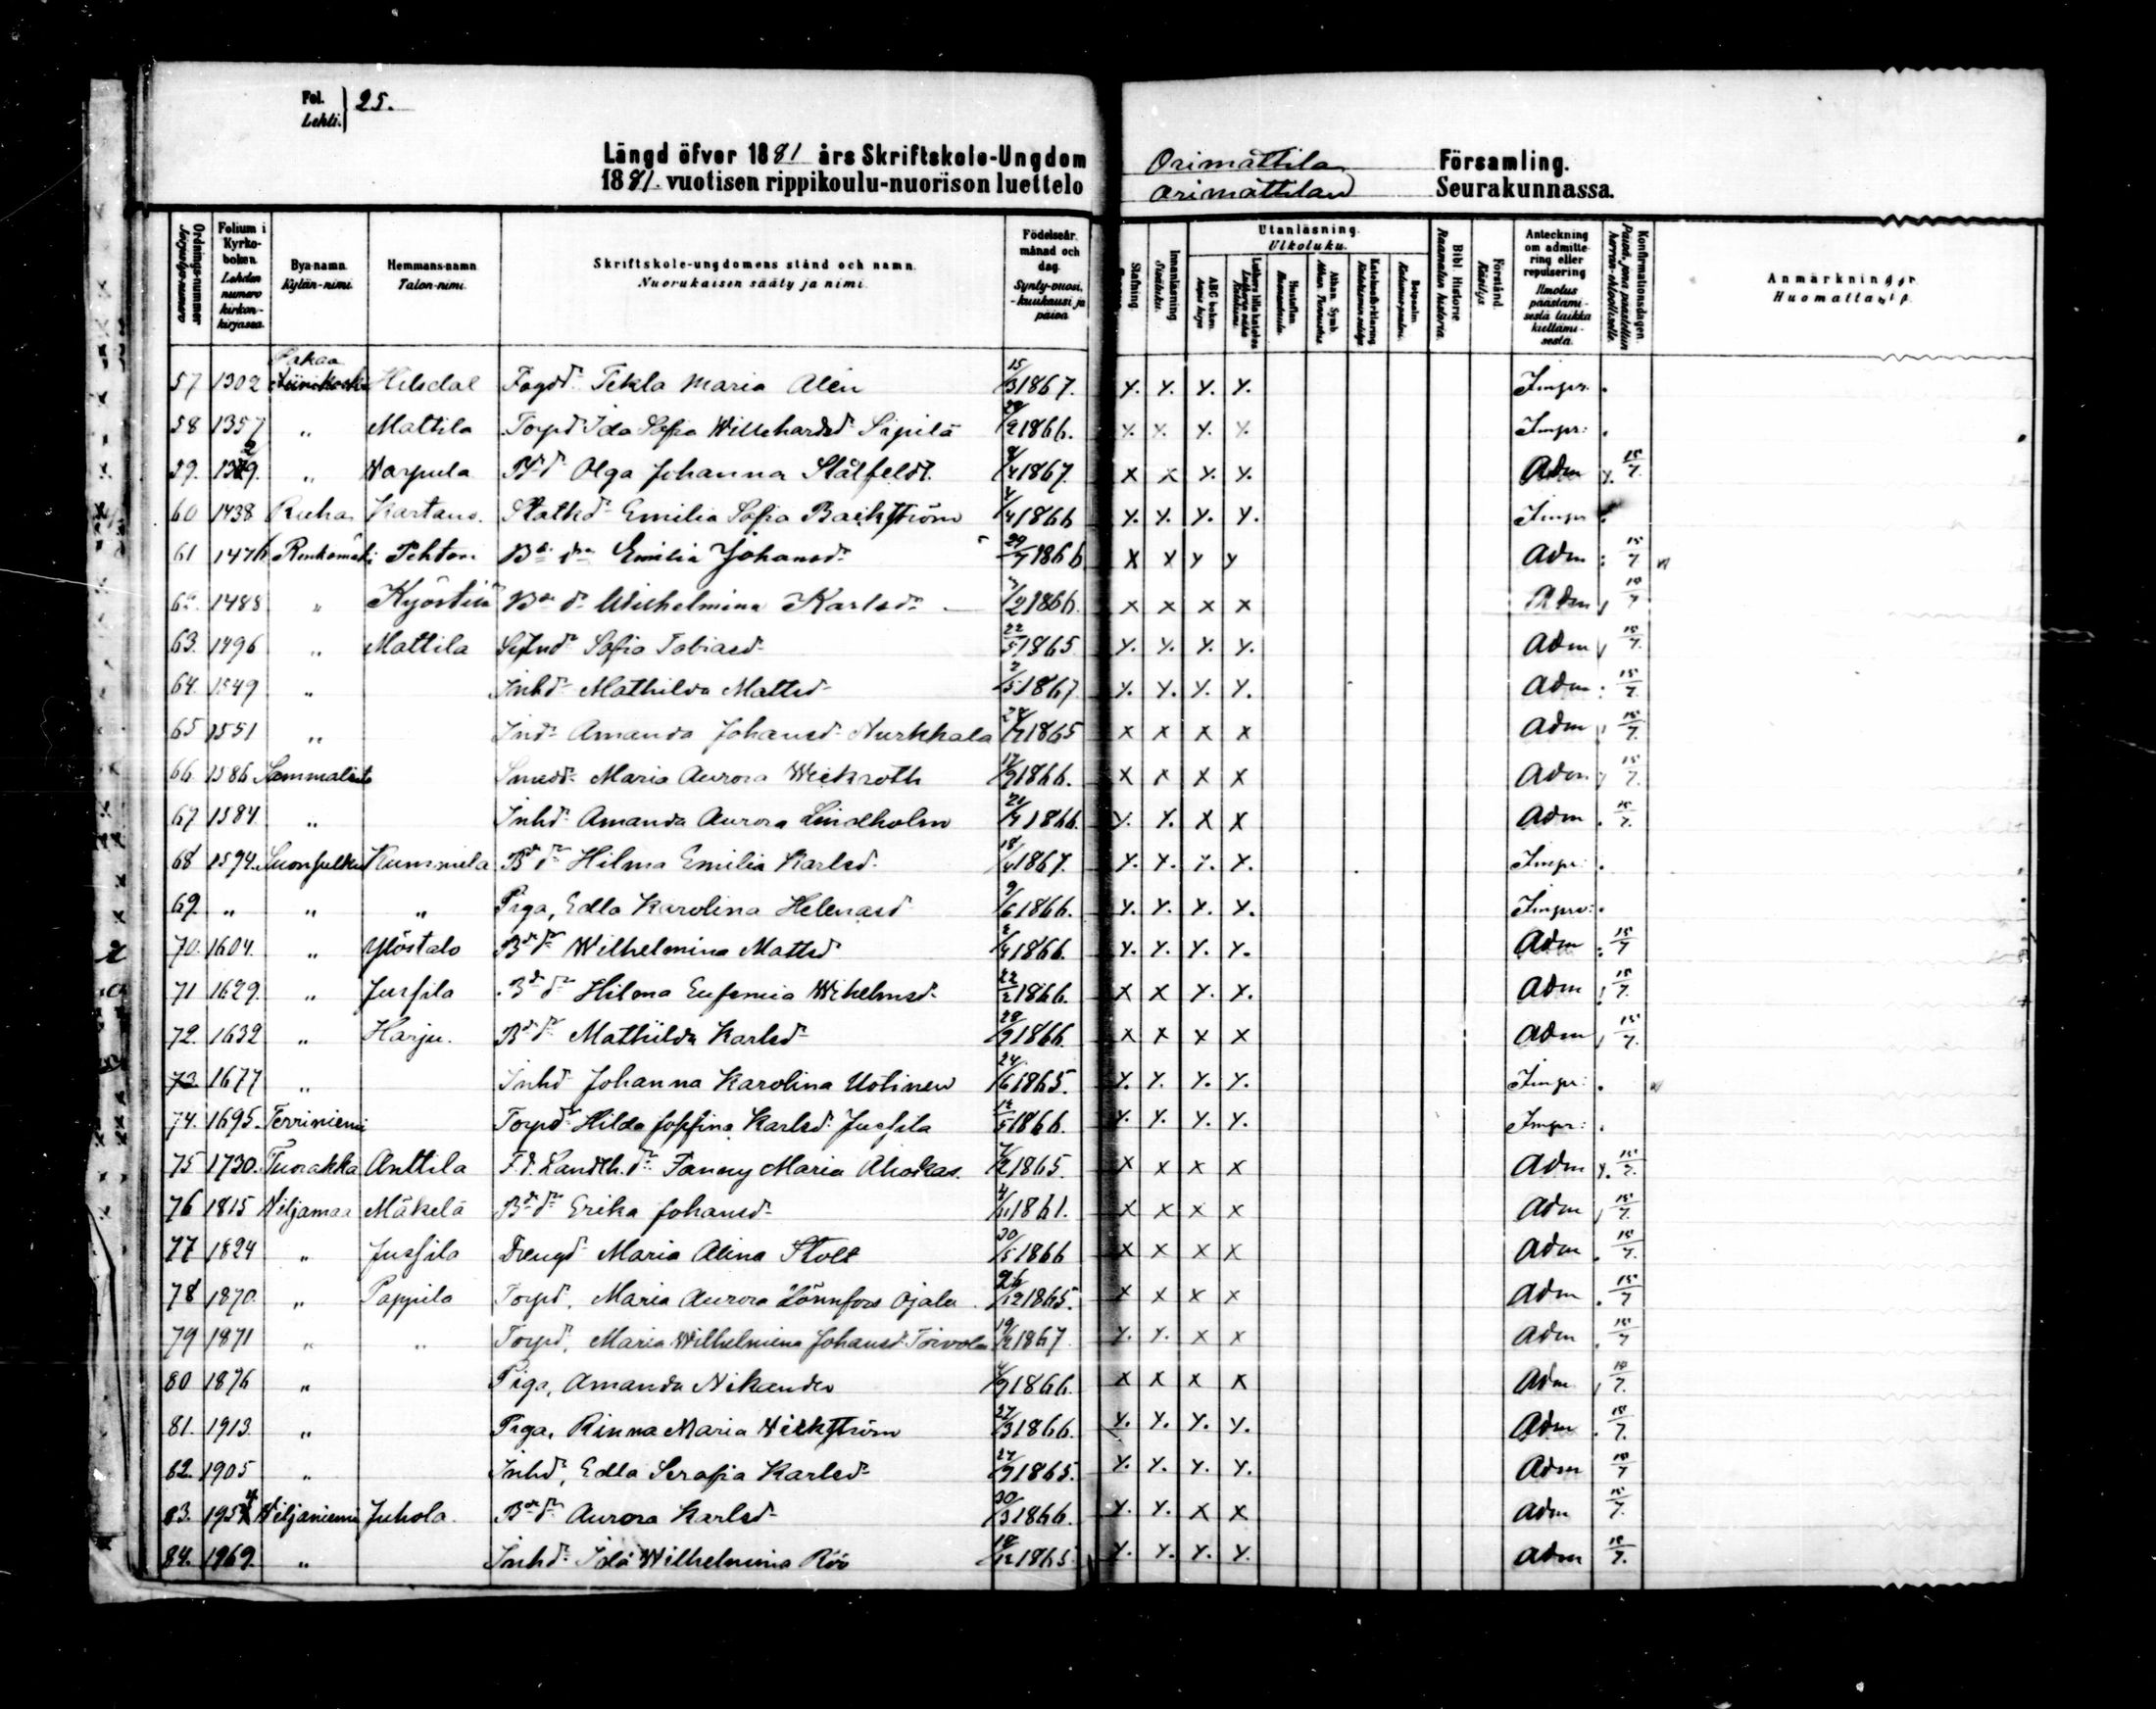 Fol. Lehti. } 25.
Längd öfver 1881 års Skriftskole-Ungdom Orimattila Församling.
1881. vuotisen rippikoulu-nuorison luettelo Orimattilan Seurakunnassa.
Ordnings-nummer Folium i Kyrko-boken Lehden numero kirkon-kirjassa. Bya-namn. Kylän-nimi. Hemmans-namn Talon-nimi. Skriftskole-ungdomens stånd och namn. Nuorukaisen sääty ja nimi. Födelseår, månad och dag. Synty-vuosi, -kuukausi ja päivä Stafning. Innanläsning Sisäluku. Utanläsning. Ulkoluku. ABC boken. Hustaflan Huoneentaulu. Athan. Symb. Bibl. Historie Raamatun historia. Förstånd. Käsitys. Anteckning om admittering eller repulsering Ilmotus päästämisestä taikka kieltämisestä. Konfirmationsdagen. Anmärkningar Huomattavia.
57 1302 Pakaa Hilsdal Fogdd:r Tekla Maria Alén 15/3 1867. y. y. y. y. Impr. .
58 1357 " Mattila Torpd:r Ida Sofia Willehardsd:r Sipilä 29/2 1866. y. y. y. y. Impr: .
59. " Warpula Olga Johanna Stålfeldt. 1867. x x y. y. Adm y. 15/7.
60 1438 Ruha Kartano. Statkd:r Emilia Sofia Backström 4/4 1866 y. y. y. y. Impr
61 1476 Renkomäki Pehtori B:de d:r Emilia Johansd:r 29/7 1866 x x y y Adm : 15/7
62. 1488 " Kyöstilä B:de d:r Wilhelmina Karlsd:r 2 1866. x x x x Adm 15/7
63. 1496 " Mattila Sofia Tobiasd:r 22/5 1865 y. y. y. y. Adm 15/7.
64. 1549 " Inhd:r Mathilda Mattsd:r 2/5 1867 y. y. y. y. Adm : 15/7.
65 1551 " Ind:r Amanda Johansd:r Nurkkala 28/7 1865 x x x x Adm 15/7.
66. 1586 Sammalisto Smedd:r Maria Aurora Weckroth 17/9 1866. x x x x Adm 15/7.
67 1584. " Inhd:r Amanda Aurora Lindholm 21 1866. y. y. x x Adm . 15/7.
68 1594. Kummela B:de d:r Hilma Emilia Karlsd:r 18/4 1867. y. y. y. y. Impr: .
69. " " " Piga, Edla Karolina Helenasd 9/6 1866. y. y. y. y. Impr: .
70. 1604. " Ylöstalo B:de d:r Wilhelmina Mattsd:r 2/4 1866. y. y. y. y. Adm : 15/7
71 1629. " Jussila B:de d:r Hilma Eufemia Wilhelmsd:r 22/2 1866. x x y. y. Adm 15/7.
72. 1632 " Harju. B:de d:r Mathilda Karlsd:r 28/9 1866. x x x x Adm 15/7.
73 1677 " Inhd:r Johanna Karolina Uotinen 24/6 1865. y. y. y. y. Impr: .
74. 1695. Terriniemi Torpd:r Hilda Josefina Karlsd:r Jussila 12/5 1866. y. y. y. y. Impr: .
75 1730. Tuorakka Anttila F.d. Landth. d:r Fanny Maria Ahokas. 7/2 1865. x x x x Adm y. 15/7.
76 1815 Wiljamaa Mäkelä B:de d:r Erika Johansd:r 4/11 1861. x x x x Adm 15/7.
77 1824 " Jussila Drengd:r Maria Alina Stolt 30/5 1866 x x x x Adm . 15/7.
78 1870. " Pappila Torpd. Maria Aurora Lönnfors Ojala 26/12 1865. x x x x Adm . 15/7
79 1871 " " Torpd. Maria Wilhelmina Johansd:r Toivola 19/2 1867. y. y. x x Adm . 15/7
80 1876 " Piga, Amanda Nikander 4/9 1866. x x x x Adm 15/7.
81. 1913. " Piga, Rinna Maria Wickström 27/3 1866. y. y. y. y. Adm . 15/7.
82. 1905 " Inhd:r, Edla Serafia Karlsd:r 27/9 1865. y. y. y. y. Adm 15/7
83. 1954 Wiljaniemi Juhola. B:de d:r Aurora Karlsd:r 30/3 1866. y. y. x x Adm 15/7.
84. 1969. " Inhd:r Ida Wilhelmina Röö 18/12 1865 y. y. y. y. Adm 15/7.